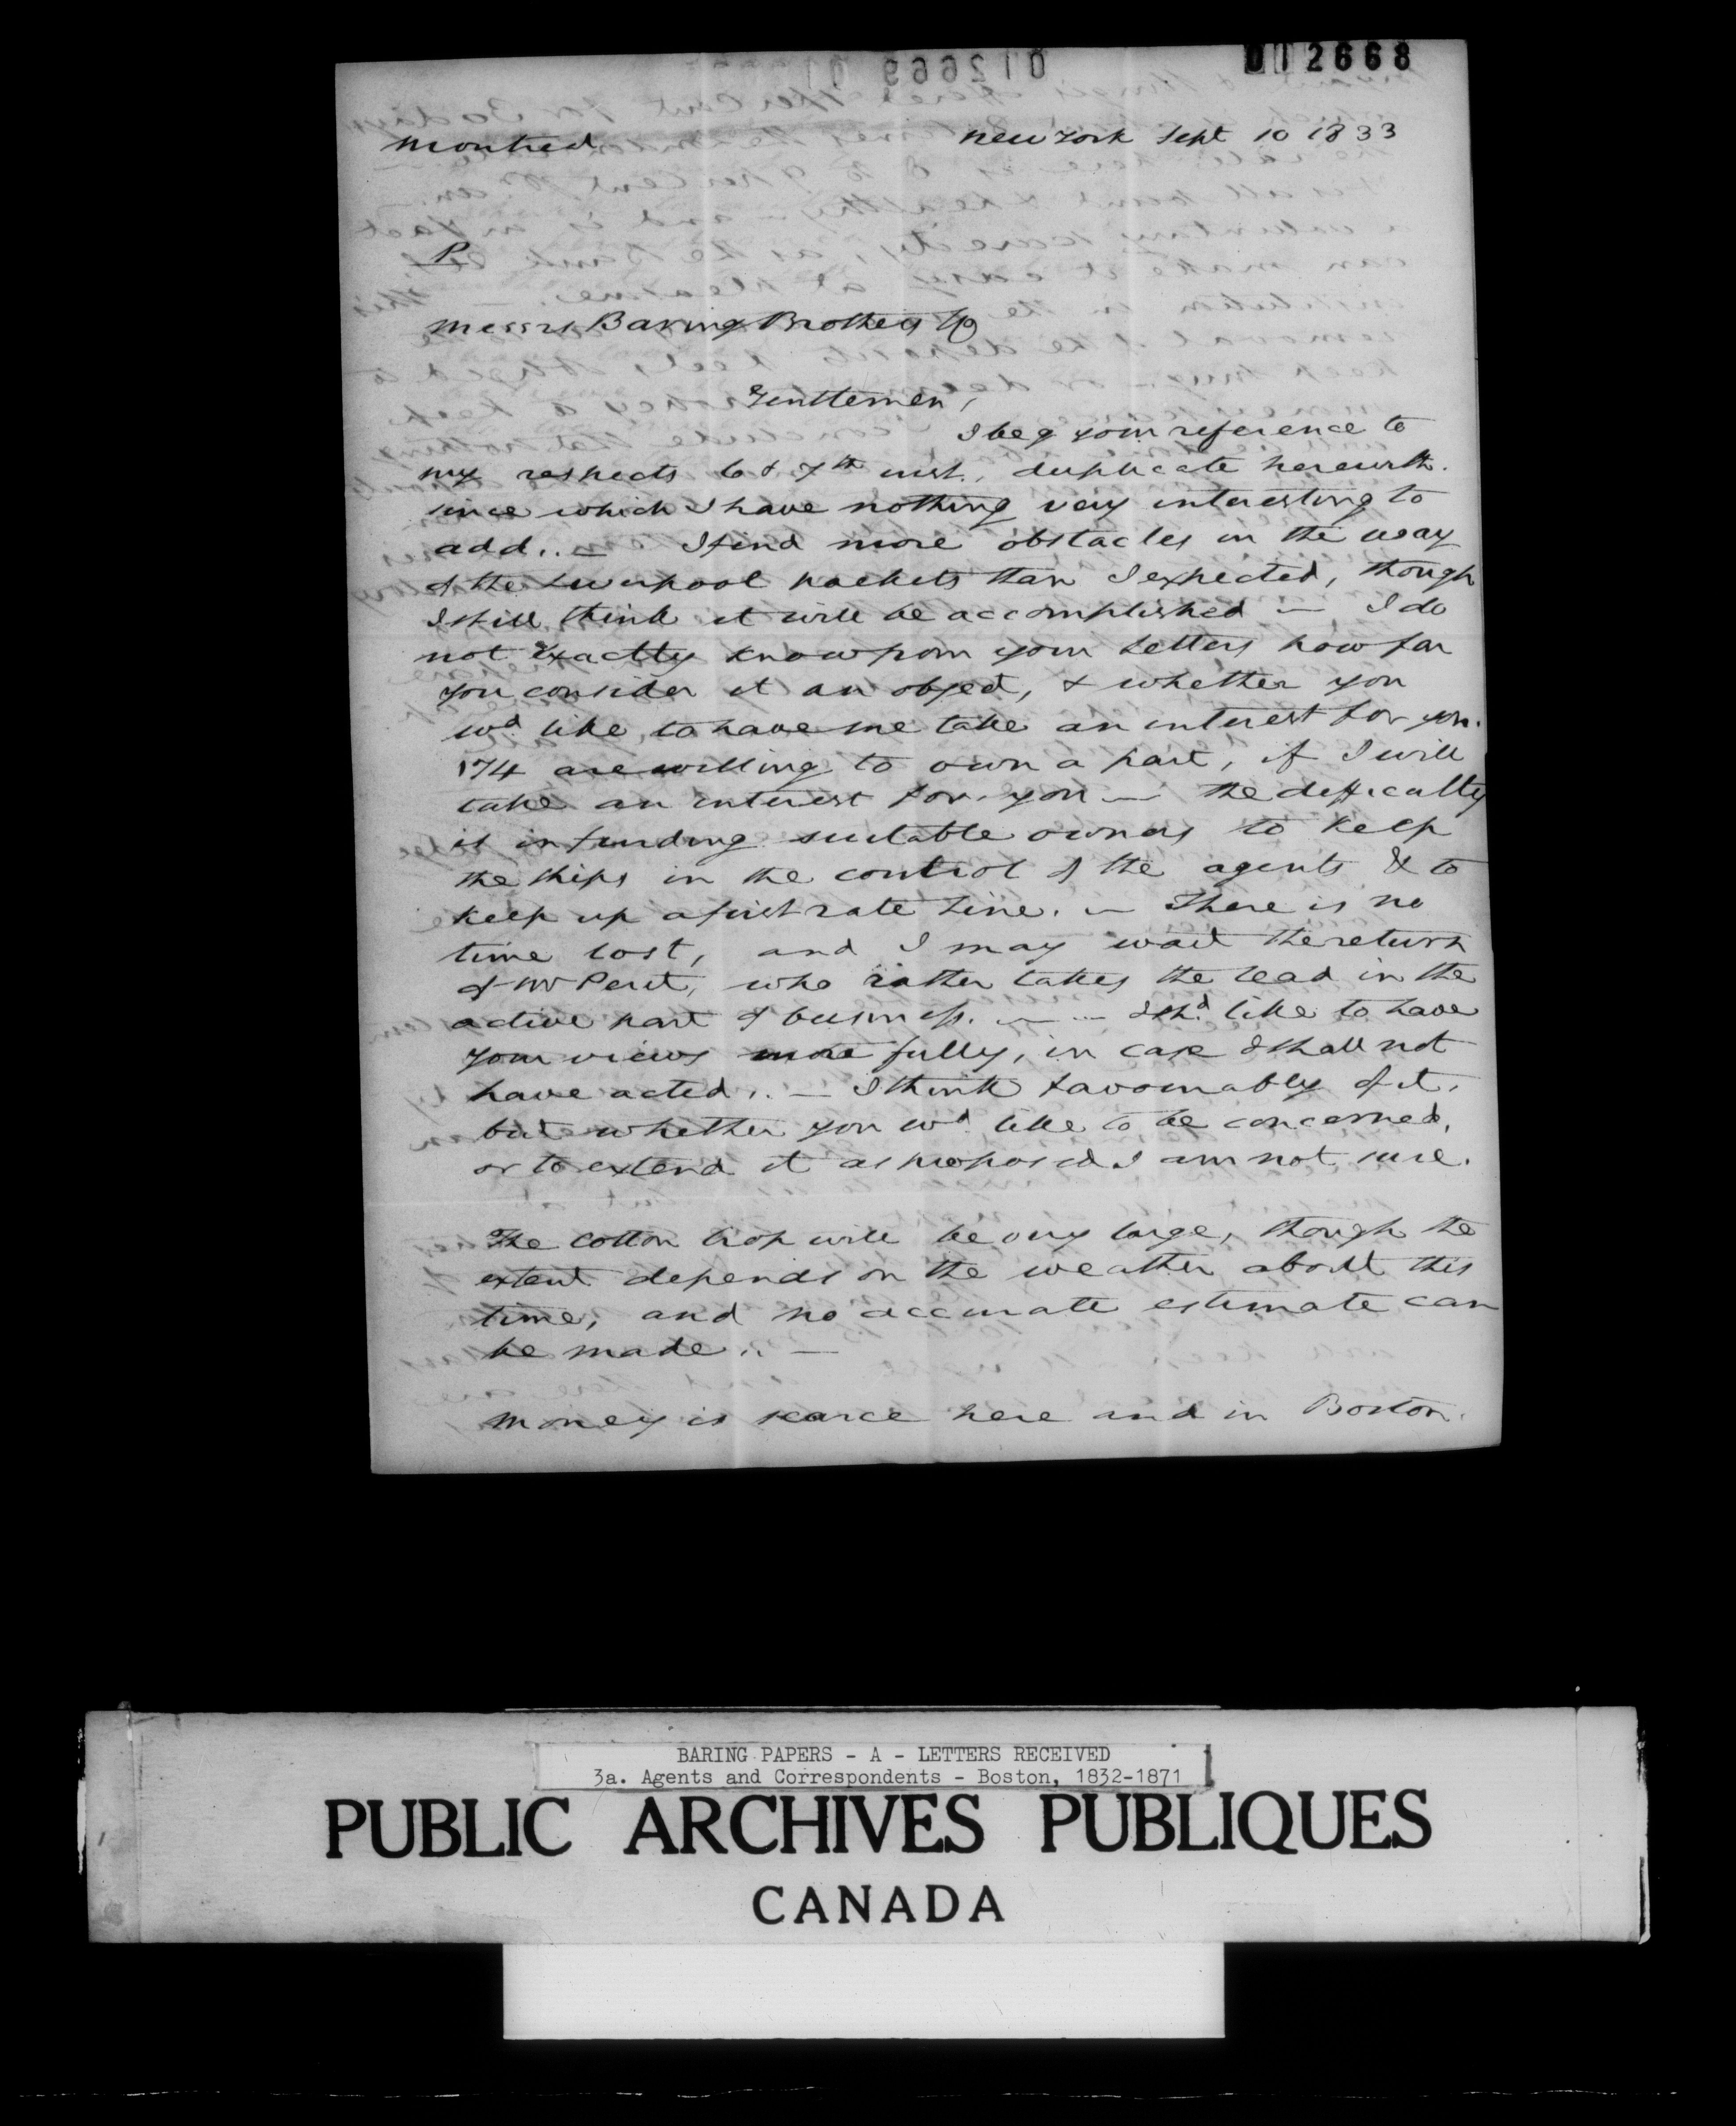 012668
Montreal
New York Sept 10 1833
P
Messrs Baring Brothers & Co
Gentlemen,
I beg your reference to
my respects 6 & 7th inst., duplicate herewith.
since which I have nothing very interesting to
add.. — I find more obstacles in the way
of the Liverpool packets than I expected, though
I still think it will be accomplished — I do
not exactly know from your letters how far
you consider it an object, & whether you
wd. like to have me take an interest for you.
174 are willing to own a part, if I will
take an interest for you — the difficulty
is in finding suitable owners to keep
the ships in the control of the agents & to
keep up a first rate line. — There is no
time lost, and I may wait the return
of Mr Perit, who rather takes the lead in the
active part of business. — I shd. like to have
your views more fully, in case I shall not
have acted.. — I think favourably of it,
but whether you wd. like to be concerned,
or to extend it as proposed I am not sure.
The cotton crop will be very large, though the
extent depends on the weather about this
time, and no accurate estimate can
be made.. —
Money is scarce here and in Boston.
BARING PAPERS - A - LETTERS RECEIVED
3a. Agents and Correspondents - Boston, 1832-1871
PUBLIC ARCHIVES PUBLIQUES
CANADA